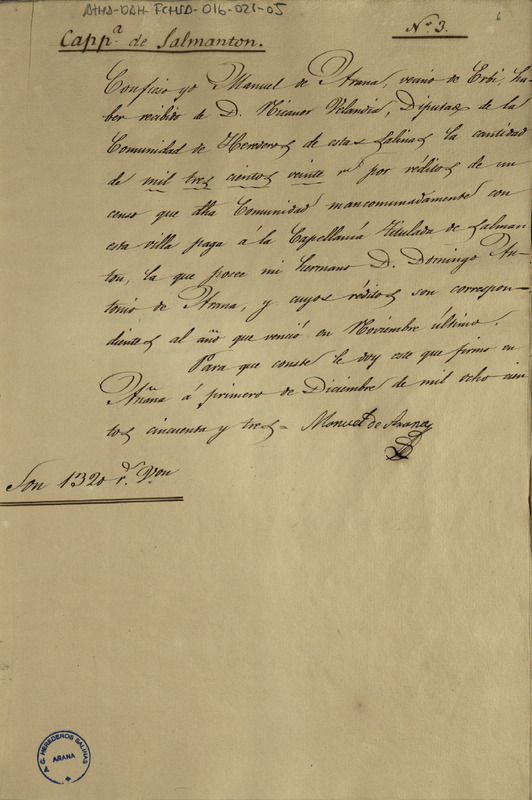 ATHA-DAH-FCHSA-016-021-05
6
Nº 3.
Capp.ª de Salmanton.
Confieso yo Manuel de Arana, vecino de Erbi, ha-
ber recibido de D. Nicanor Velandia, Diputado de la
Comunidad de Herederos de estas Salinas la cantidad
de mil tres cientos veinte rs por reditos de un
censo que dha Comunidad mancomunadamente con
esta villa paga á la Capellanía titulada de Salman
ton, la que posee mi hermano D. Domingo An-
tonio de Arana, y cuyos réditos son correspon-
dientes al año que venció en Noviembre último.
Para que conste le doy este que firmo en
Añana á primero de Diciembre de mil ocho cien
tos cincuenta y tres = Manuel de Arana
Son 1320 rs Von
A. C. HEREDEROS SALINAS
AÑANA